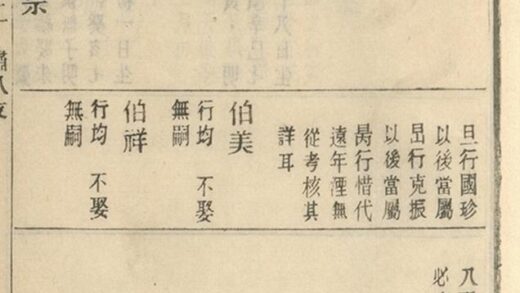 旦行國珍
以後當屬
行克振
以後當屬
行惜代
遠年湮無
從考核其
詳耳
伯美
行均 不娶
無嗣
伯祥
行均 不娶
無嗣
八
必